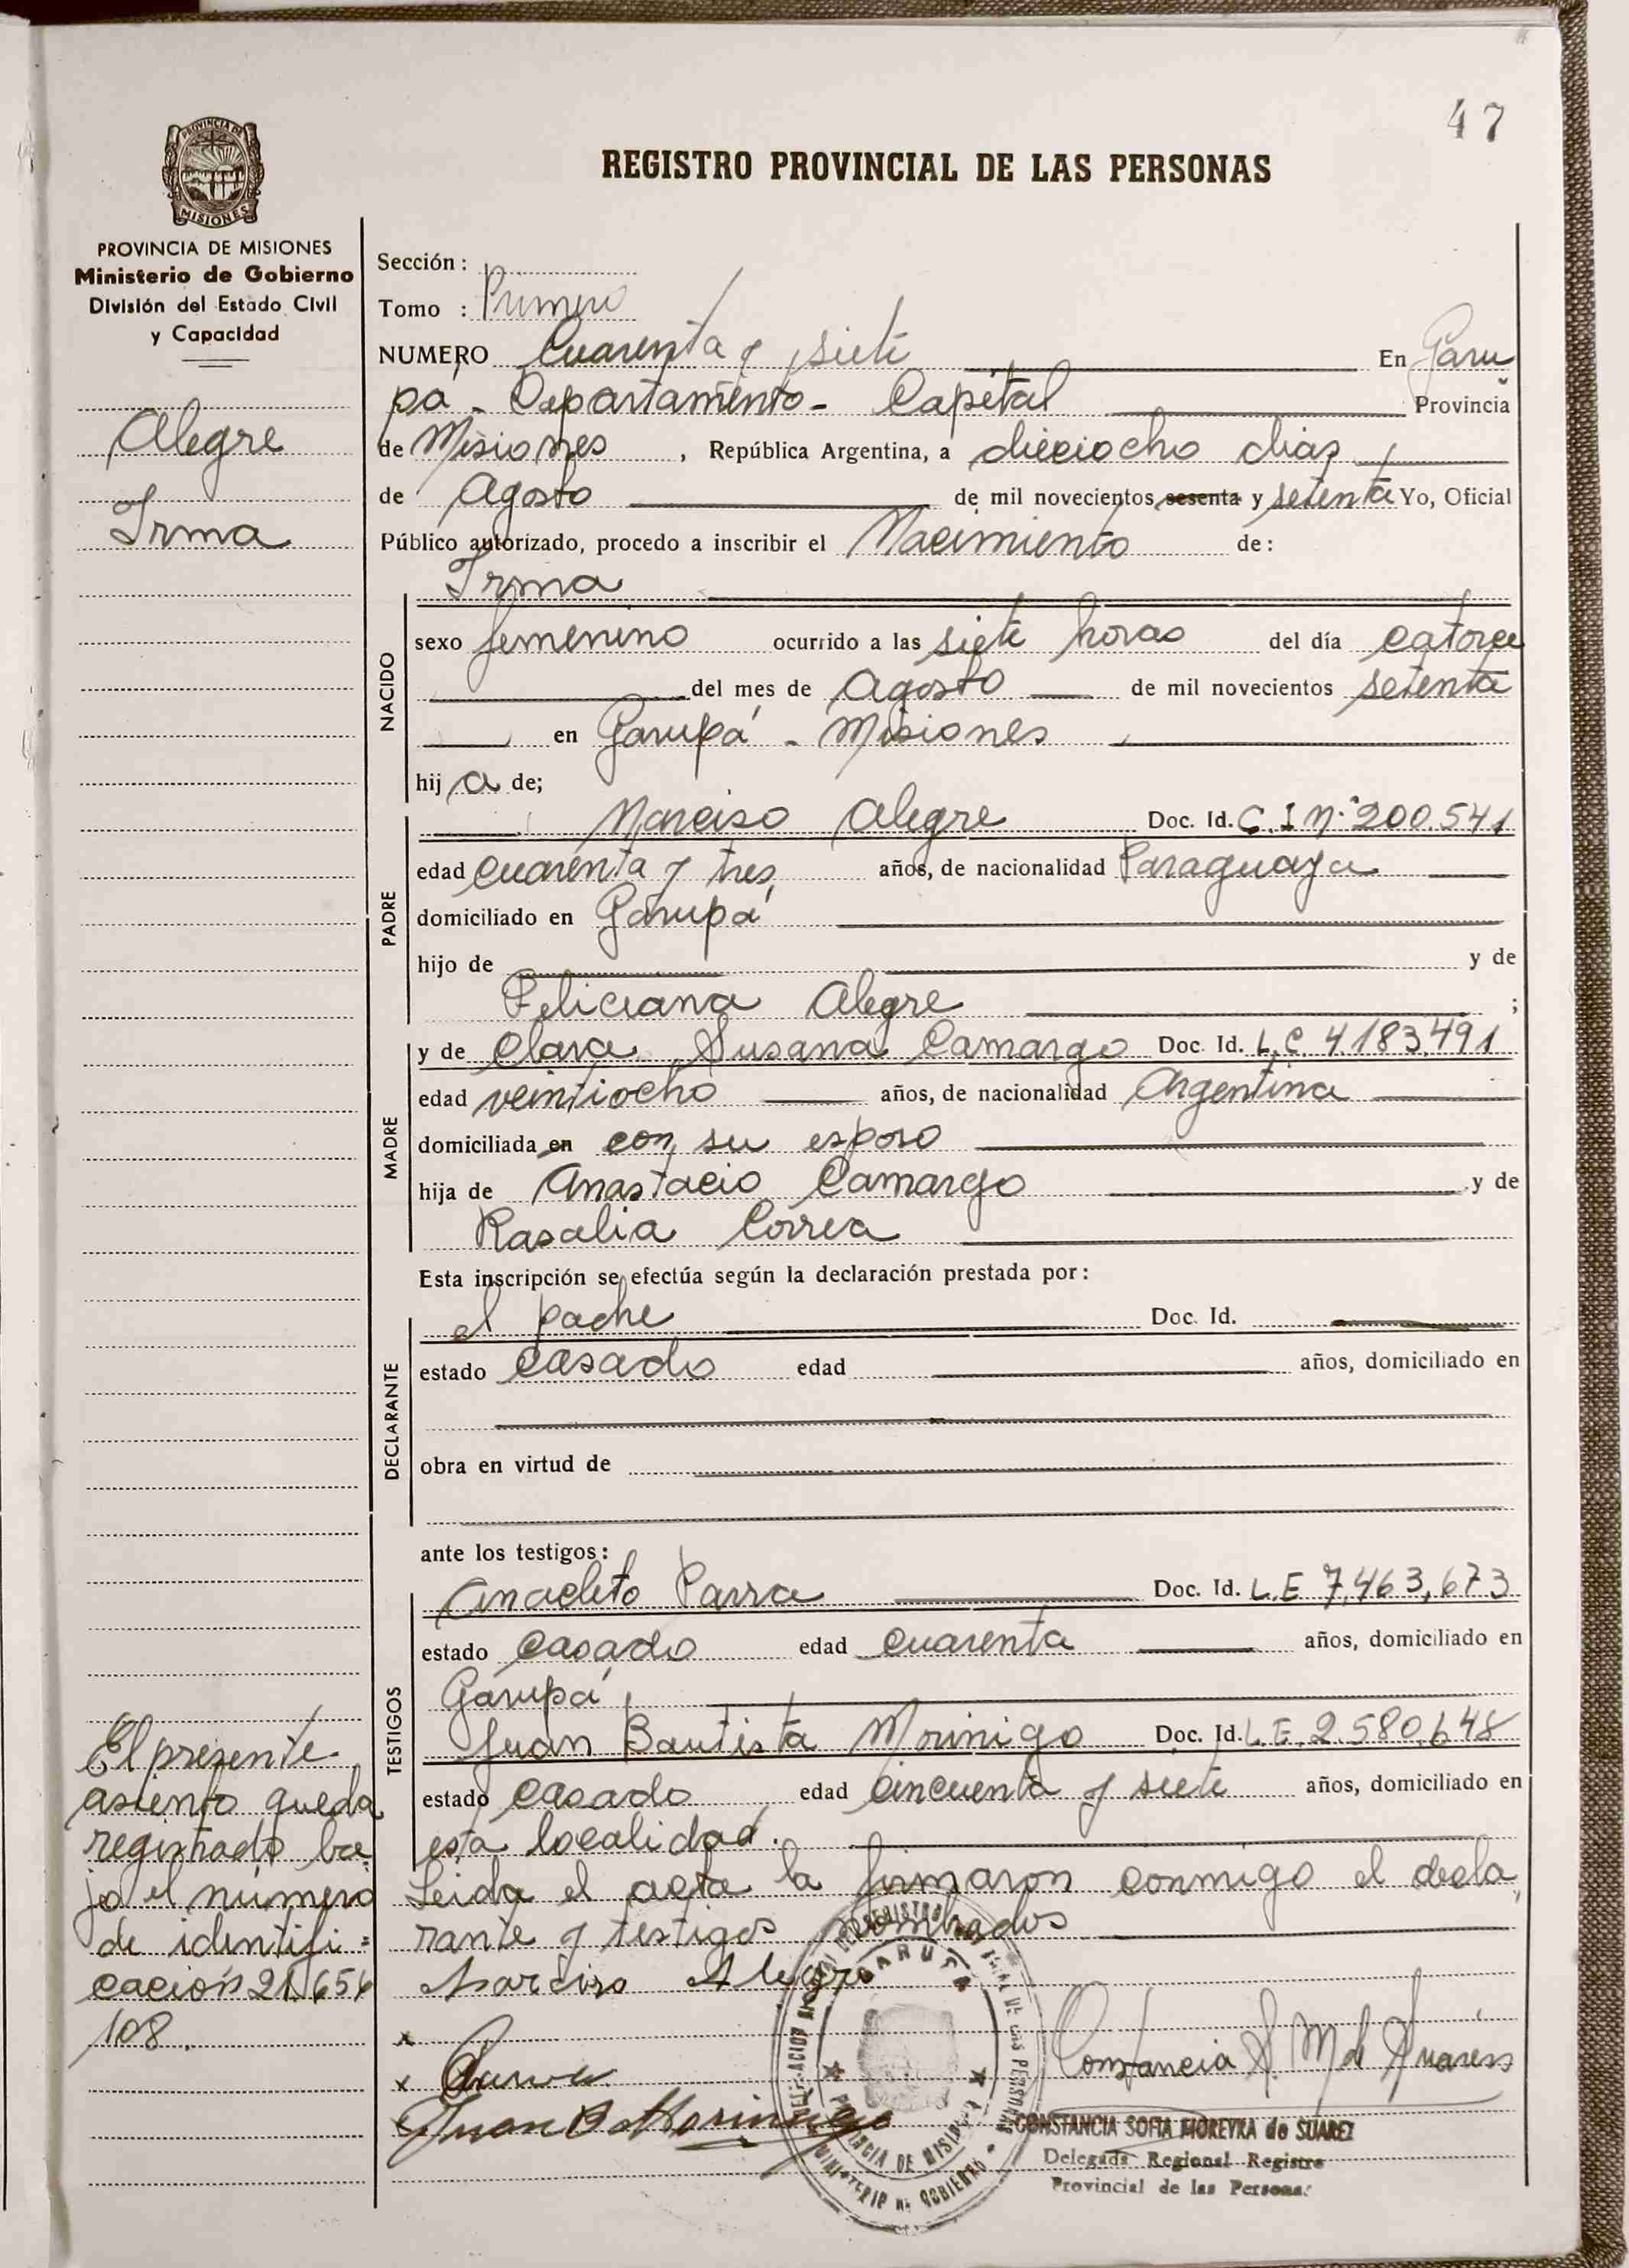 47
REGISTRO PROVINCIAL DE LAS PERSONAS
PROVINCIA DE
MISIONES
PROVINCIA DE MISIONES
Ministerio de Gobierno
División del Estado Civil
y Capacidad
Alegre
Irma
Sección :
Tomo : Primero
NUMERO Cuarenta y siete En Garu
pá - Departamento - Capital Provincia
de Misiones , República Argentina, a dieciocho dias
de Agosto de mil novecientos sesenta y setenta Yo, Oficial
Público autorizado, procedo a inscribir el Nacimiento de :
Irma
NACIDO
sexo femenino ocurrido a las siete horas del día catorce
del mes de Agosto de mil novecientos setenta
en Garupá - Misiones
hij a de;
PADRE
Narciso Alegre Doc. Id. C.I Nº 200.541
edad cuarenta y tres años, de nacionalidad Paraguaya
domiciliado en Garupá
hijo de y de
Feliciana Alegre ;
MADRE
y de Clara Susana Camargo Doc. Id. L.C. 4.183.491
edad veintiocho años, de nacionalidad Argentina
domiciliada en con su esposo
hija de Anastacio Camargo y de
Rasalia Correa
Esta inscripción se efectúa según la declaración prestada por :
DECLARANTE
el padre Doc. Id.
estado casado edad años, domiciliado en
obra en virtud de
ante los testigos :
TESTIGOS
Anacleto Parra Doc. Id. L.E 7,463,673
estado casado edad cuarenta años, domiciliado en
Garupá
Juan Bautista Morinigo Doc. Id. L.E. 2.580.648
estado casado edad cincuenta y siete años, domiciliado en
esta localidad.
Leida el acta la firmaron conmigo el decla
rante y testigos nombrados
Narciso Alegre
x
x Parra
x Juan B Morinigo
El presente
asiento queda
registrado ba=
jo el número
de identifi=
cación 21.656
108.
GARUPÁ
PROVINCIA DE MISIONES
MINISTERIO DE GOBIERNO
Constancia S. M de Suarez
CONSTANCIA SOFIA MOREYRA de SUAREZ
Delegada Regional Registro
Provincial de las Personas